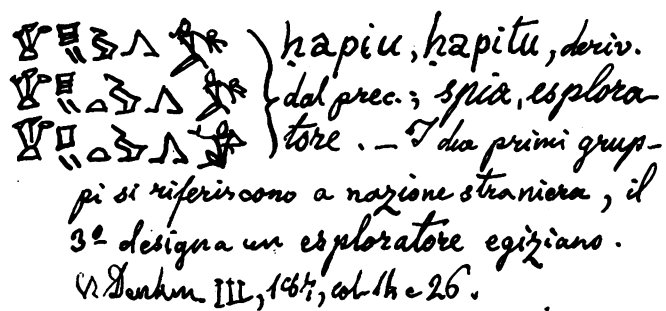 ḥapiu, ḥapitu, deriv.
dal prec.; spia, esplora-
tore. — I due primi grup-
pi si riferiscono a nazione straniera, il
3º designa un esploratore egiziano.
Denkm. III, col. e 26.